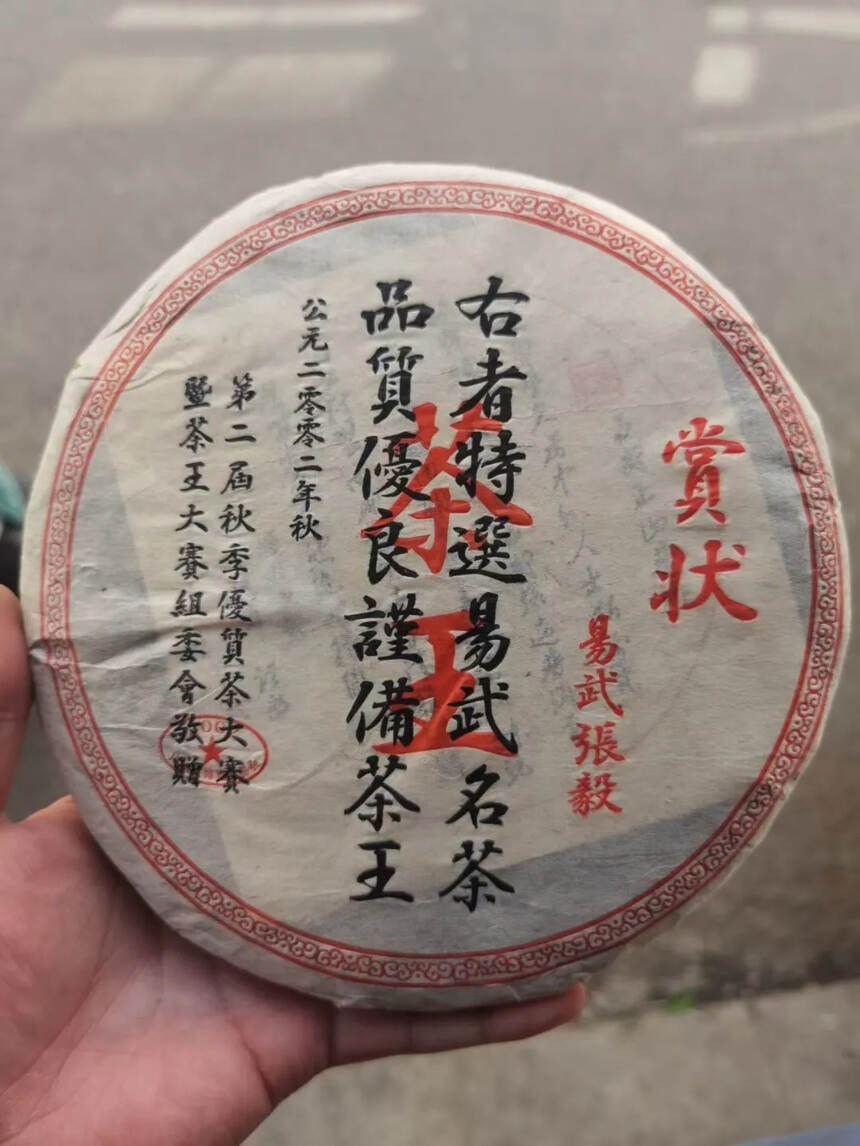 賞状
易武張毅
右者特選易武名茶
品質優良謹備茶王
茶王
公元二零零二年秋
第二届秋季優質茶大賽
暨茶王大賽組委會敬贈